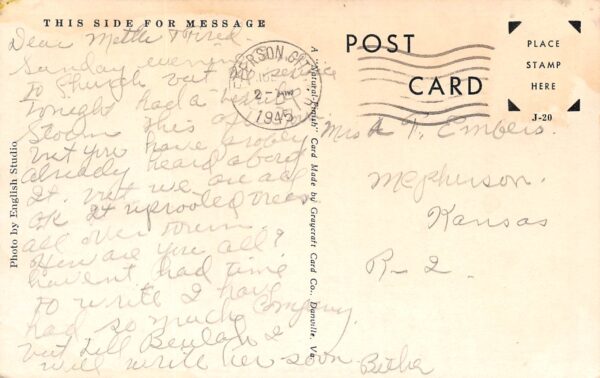 THIS SIDE FOR MESSAGE
Dear Mettie
Sunday evening
to Church but no service
tonight had a terrible
Storm this afternoon
but you have probly
already heard about
it. but we are all
OK It uprooted trees
all over town.
How are you all?
havent had time
to write I have
had so much Company.
but tell Beulah I
will write her soon
Photo by English Studio
A "Natural-Finish" Card Made by Graycraft Card Co., Danville, Va.
ERSON CITY
2-
1945
POST
CARD
PLACE
STAMP
HERE
J-20
Mrs A T. Embers.
Mcpherson.
Kansas
R-2.